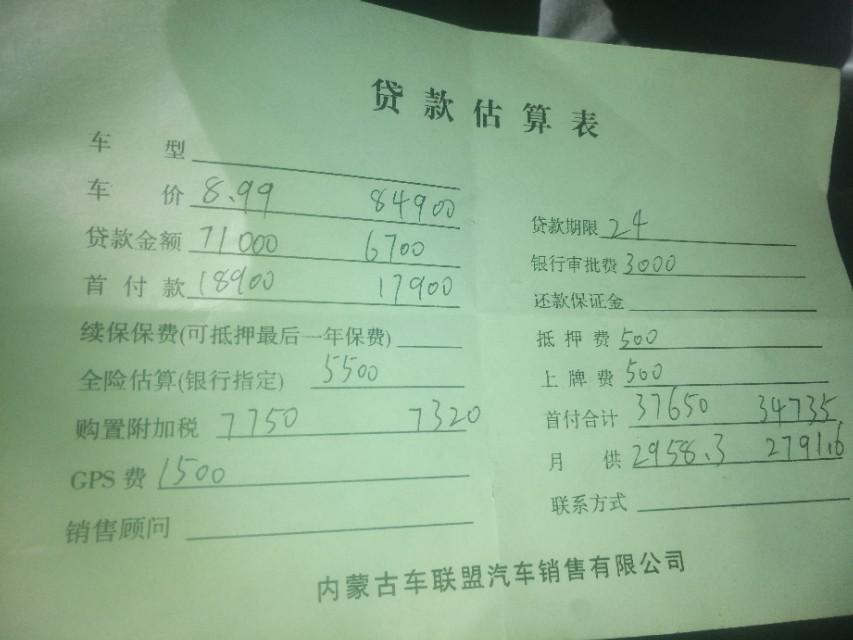 贷款估算表
车 型
车 价 8.99 84900
贷款金额 71000 6700
首 付 款 18900 17900
续保保费(可抵押最后一年保费)
全险估算(银行指定) 5500
购置附加税 7750 7320
GPS 费 1500
销售顾问
贷款期限 24
银行审批费 3000
还款保证金
抵 押 费 500
上 牌 费 500
首付合计 37650 34735
月 供 2958.3 2791.6
联系方式
内蒙古车联盟汽车销售有限公司